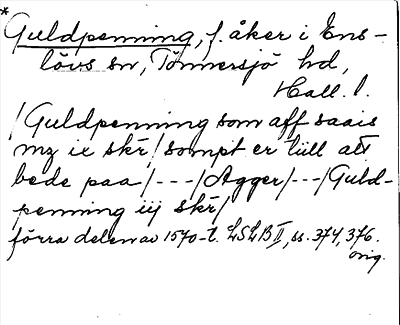 *
Guldpenning, f. åker i Ens-
lövs sn, Tönnersjö hd,
Hall. l.
/Guldpenning som aff saais
mz ix skr/ sompt er tiill att
bede paa/---/Agger/---/Guld-
penning iij skr/
förra delen av 1570-t. LSLB II, ss. 374, 376.
orig.